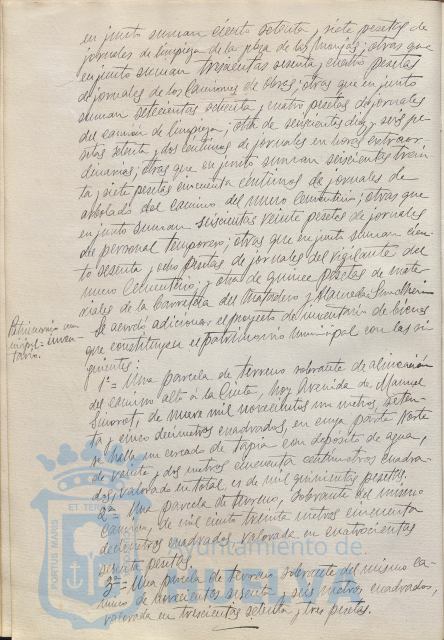 en junto suman ciento setenta y siete pesetas de
jornales de limpieza de la plaza de las Monjas; otras que
en junto suman trescientas sesenta y cuatro pesetas
de jornales de los camiones de obras; otras que en junto
suman setecientas setenta y cuatro pesetas de jornales
del camión de limpieza; otra de seiscientas diez y seis pe-
setas setenta y dos centimos de jornales en horas extraor-
dinarias; otras que en junto suman seiscientas trein-
ta y siete pesetas cincuenta centimos de jornales de
arbolado del camino del nuevo Cementerio; otras que
en junto suman seiscientas veinte pesetas de jornales
de personal temporero; otras que en junto suman cien-
to sesenta y ocho pesetas de jornales del vigilante del
nuevo Cementerio; y otra de quince pesetas de mate-
riales de la Carretera del Matadero y Alameda Sundheim
Patrimonio mu-
nicipal = inven-
tario.
Se acordó adicionar el proyecto de inventario de bienes
que constituyen el patrimonio municipal con las si-
guientes:
1ª = Una parcela de terreno sobrante de alineación
del camino alto a la Cinta, hoy Avenida de Manuel
Siurot, de nueve mil novecientos un metros, seten-
ta y cinco decimetros cuadrados, en cuya parte Norte
se halla un cercado de tapia con deposito de agua,
de veinte y dos metros cincuenta centimetros cuadra-
dos, valorada en total en seis mil quinientas pesetas.
2ª = Una parcela de terreno, sobrante del mismo
camino, de mil ciento treinta metros cincuenta
decimetros cuadrados valorada en cuatrocientas
sesenta pesetas.
3ª = Una parcela de terreno sobrante del mismo ca-
mino de novecientos sesenta y seis metros cuadrados,
valorada en trescientas setenta y tres pesetas.
PORTUS MARIS
ET TERRAE
Ayuntamiento de
HUELVA